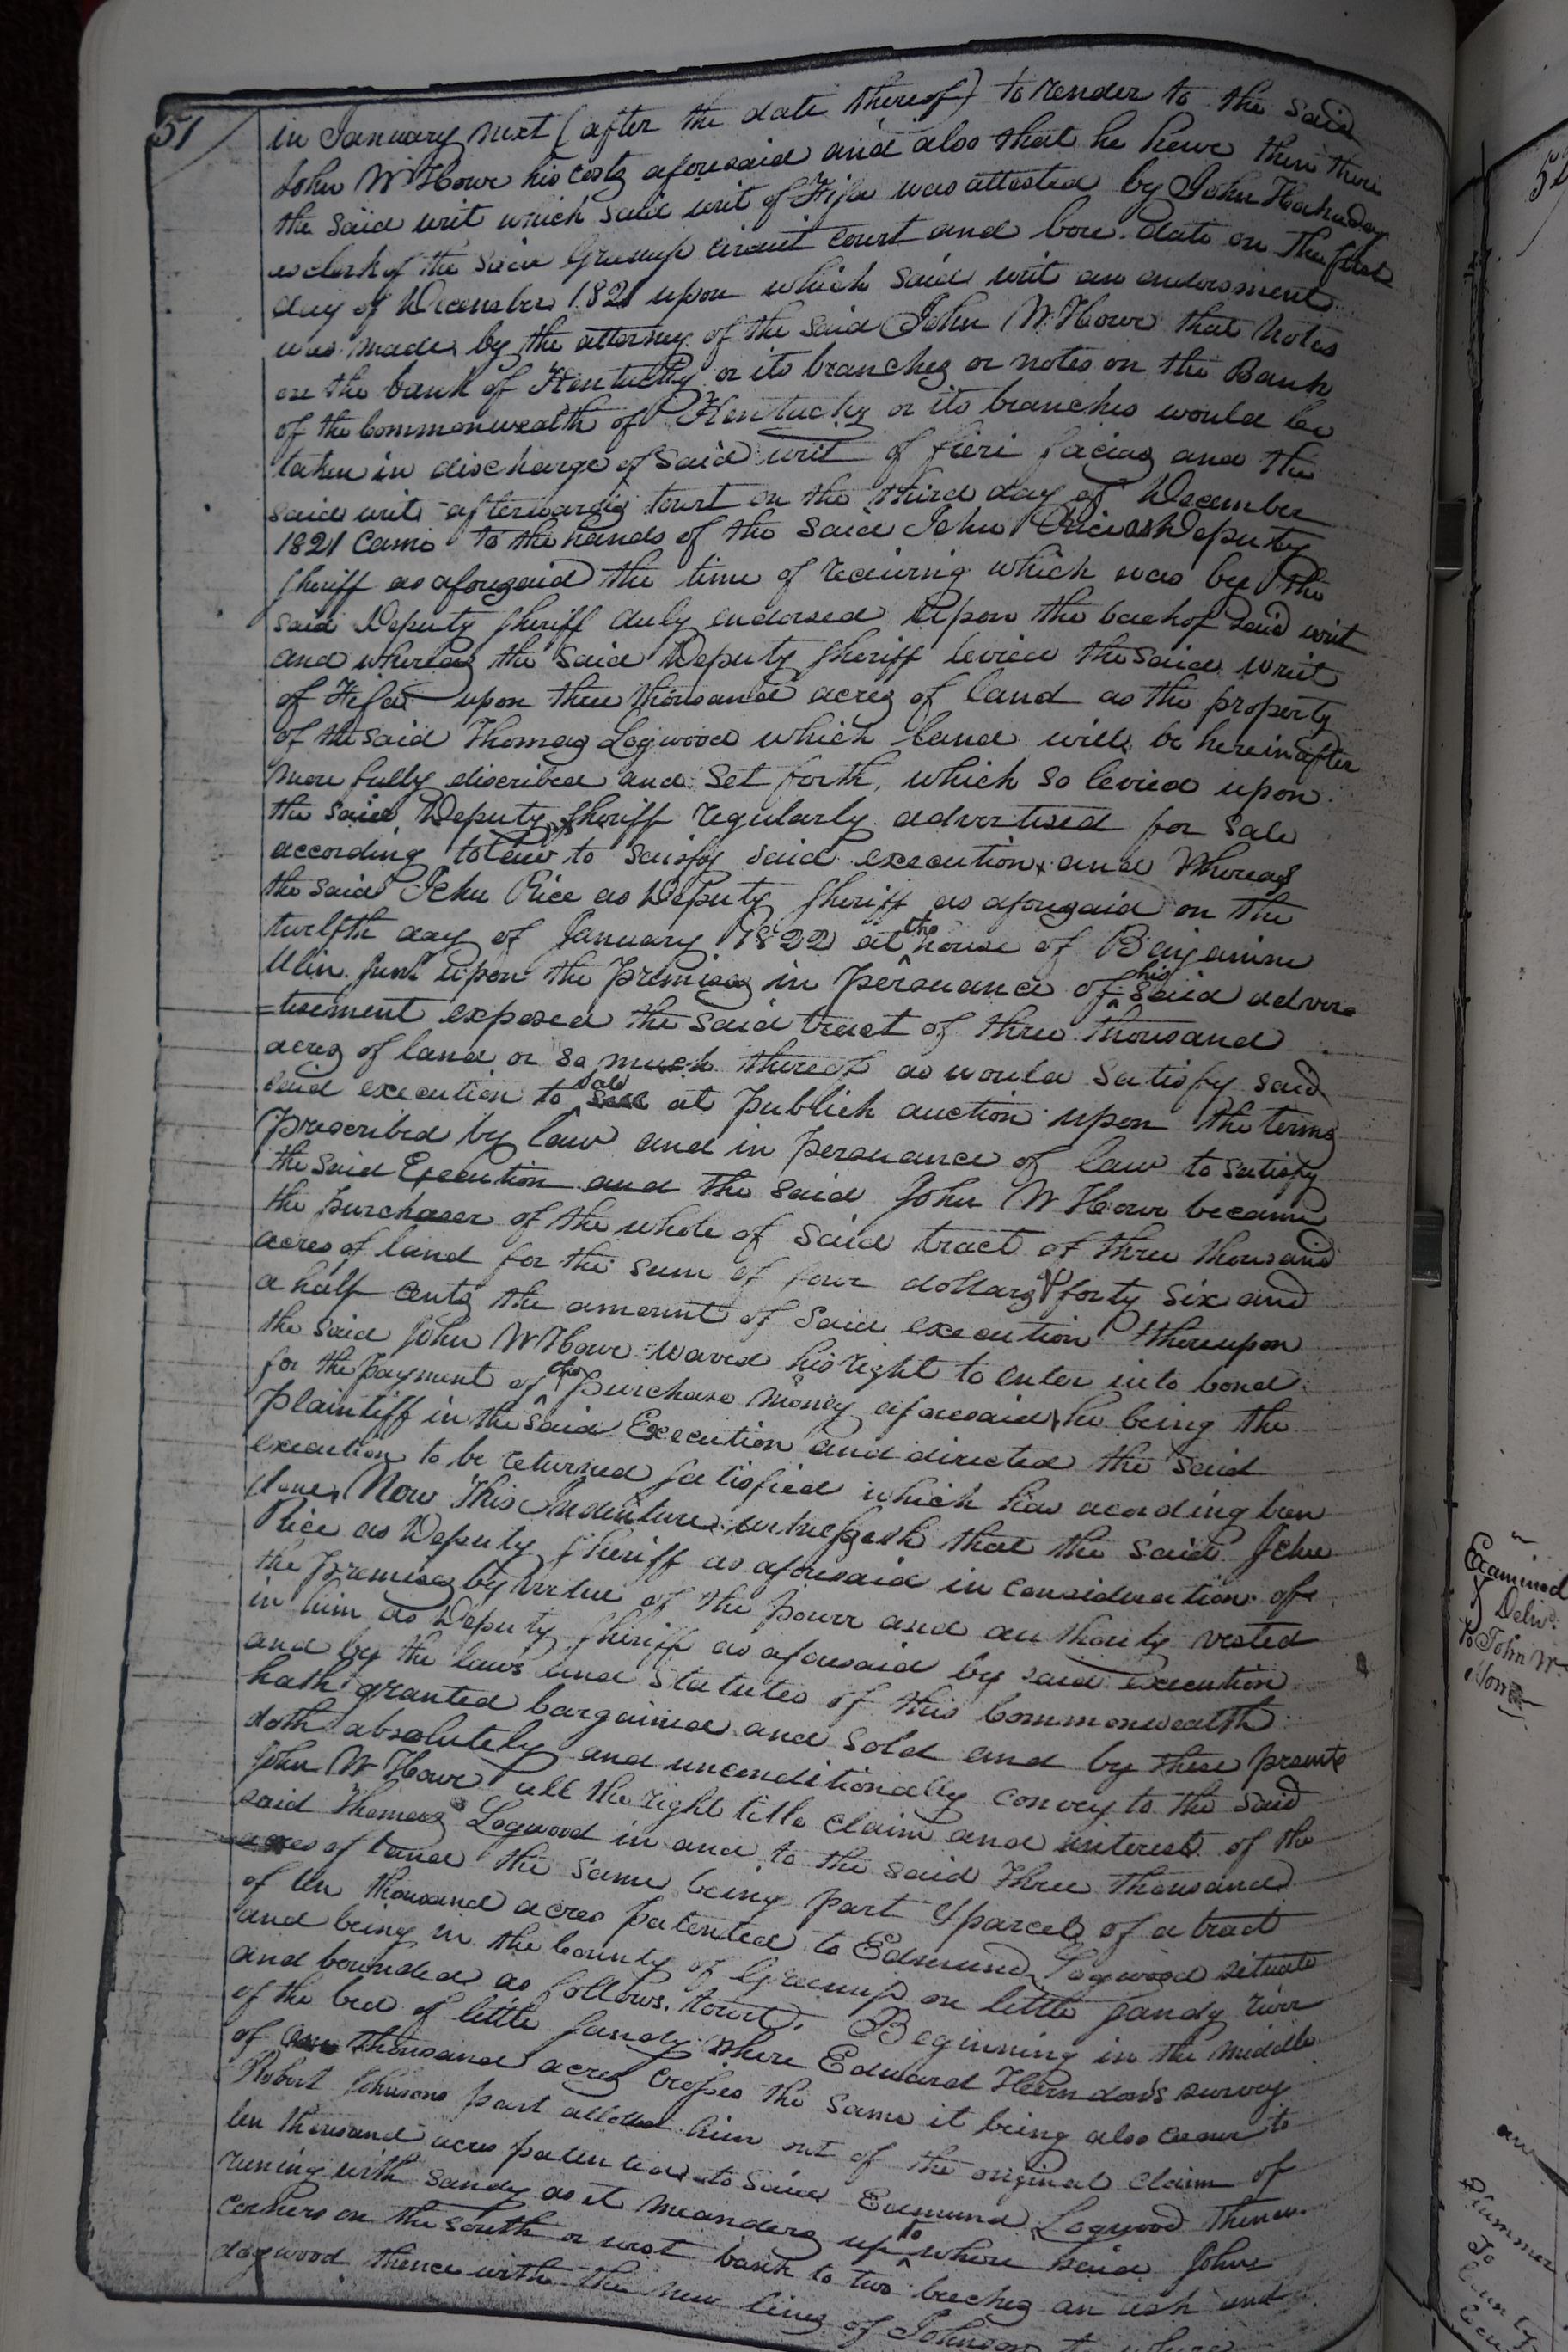 51
in January next (after the date thereof) to render to the said
John W Howe his costs aforesaid and also that he have then there
the said writ which said writ of Fifa was attested by John Hockaday
as clerk of the said Greenup circuit court and bore date on the first
day of December 1821 upon which said writ an endorsment
was made by the attorney of the said John W. Howe that notes
on the bank of Kentucky or its branches or notes on the Bank
of the Commonwealth of Kentucky or its branches would be
taken in discharge of said writ of fieri facias and the
said writ afterwards towit on the third day of December
1821 came to the hands of the said John Rice as Deputy
sheriff as aforesaid the time of receiving which was by the
said Deputy sheriff duly endorsed upon the back of said writ
and whereas the said Deputy sheriff levied the said writ
of Fifa upon three thousand acres of land as the property
of the said Thomas Logwood which land will be hereinafter
more fully discribed and set forth, which so levied upon
the said Deputy sheriff regularly advertised for sale
according to law to satisfy said execution and whereas
the said John Rice as Deputy sheriff as aforesaid on the
twelfth day of January 1822 at the house of Benjamine
Ulin Junr upon the premises in persuance of his said adver
=tisement exposed the said tract of three thousand
acres of land or so much thereof as would satisfy said
said execution to sale at publick auction upon the terms
prescribed by law and in persuance of law to satisfy
the said Execution and the said John W Howe became
the purchaser of the whole of said tract of three thousand
acres of land for the sum of four dollars & forty six and
a half cents the amount of said execution thereupon
the said John W Howe waved his right to enter into bond
for the payment of the purchase money aforesaid he being the
plaintiff in the said Execution and directed the said
execution to be returned satisfied which has acording been
done, Now This Indenture witnesseth that the said John
Rice as Deputy sheriff as aforesaid in consideration of
the premises by virtue of the power and authority vested
in him as Deputy sheriff as aforesaid by said execution
and by the laws and statutes of this Commonwealth
hath granted bargained and sold and by these presents
doth absolutely and unconditionally convey to the said
John W Howe all the right title claim and interest of the
said Thomas Logwood in and to the said three thousand
acres of land the same being part & parcel of a tract
of ten thousand acres patented to Edmund Logwood situate
and being in the County of Greenup on little sandy river
and bounded as follows, towit, Beginning in the middle
of the bed of little sandy where Edward Herndons survey
of thousand acres crosses the same it being also corner to
Robert Johnsons part allotted him out of the original claim of
ten thousand acres patented to said Edmund Logwood Thence
runing with sandy as it meanders up to where said Johns
corners on the south or west bank to two beeches an ash and
dogwood thence with the new lines of Johnson to where
52
Examined
& Delivd.
to John W.